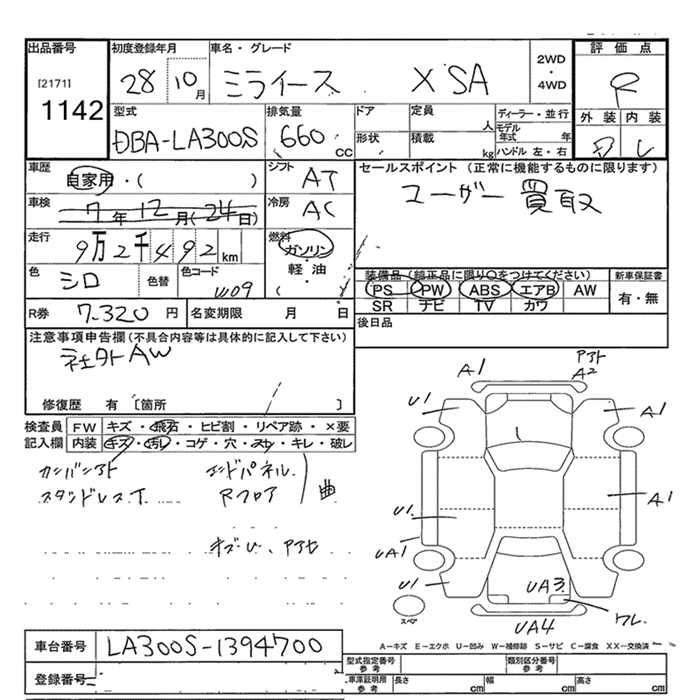 出品番号 初度登録年月 車名・グレード 2WD・4WD 評価点
[2171] 28 10月 ミライース X SA R
1142 外装 内装
型式 排気量 ドア 定員 人 ディーラー・並行
DBA-LA300S 660 CC 形状 積載 kg モデル年式 年
ハンドル 左・右
車歴 自家用・( ) シフト AT セールスポイント (正常に機能するものに限ります)
車検 7年12月(24日) 冷房 AC ユーザー買取
走行 9万2千492km 燃料 ガソリン・軽・油
( 装備品(純正品に限り○をつけてください) 新車保証書
色 シロ 色替 色コード W09 PS PW ABS エアB AW 有・無
SR ナビ TV カワ
R券 7.320円 名変期限 月 日 後日品
注意事項申告欄(不具合内容等は具体的に記入して下さい)
社外AW
修復歴 有 〔箇所 〕
検査員記入欄 FW キズ・飛石・ヒビ割・リペア跡・×要
内装 キズ・汚れ・コゲ・穴・スレ・キレ・破レ
エンドパネル
Rフロア 曲
A1
アト
A2
U1 A1
U1 A1
UA1
U1
UA3
ワレ
スペア
UA4
A-キズ E-エクボ U-凹み W-補修跡 S-サビ C-腐食 XX-交換済
車台番号 LA300S-1394700
型式指定番号 参考 類別区分番号 参考
登録番号 車庫証明用 参考 長さ cm 幅 cm 高さ cm